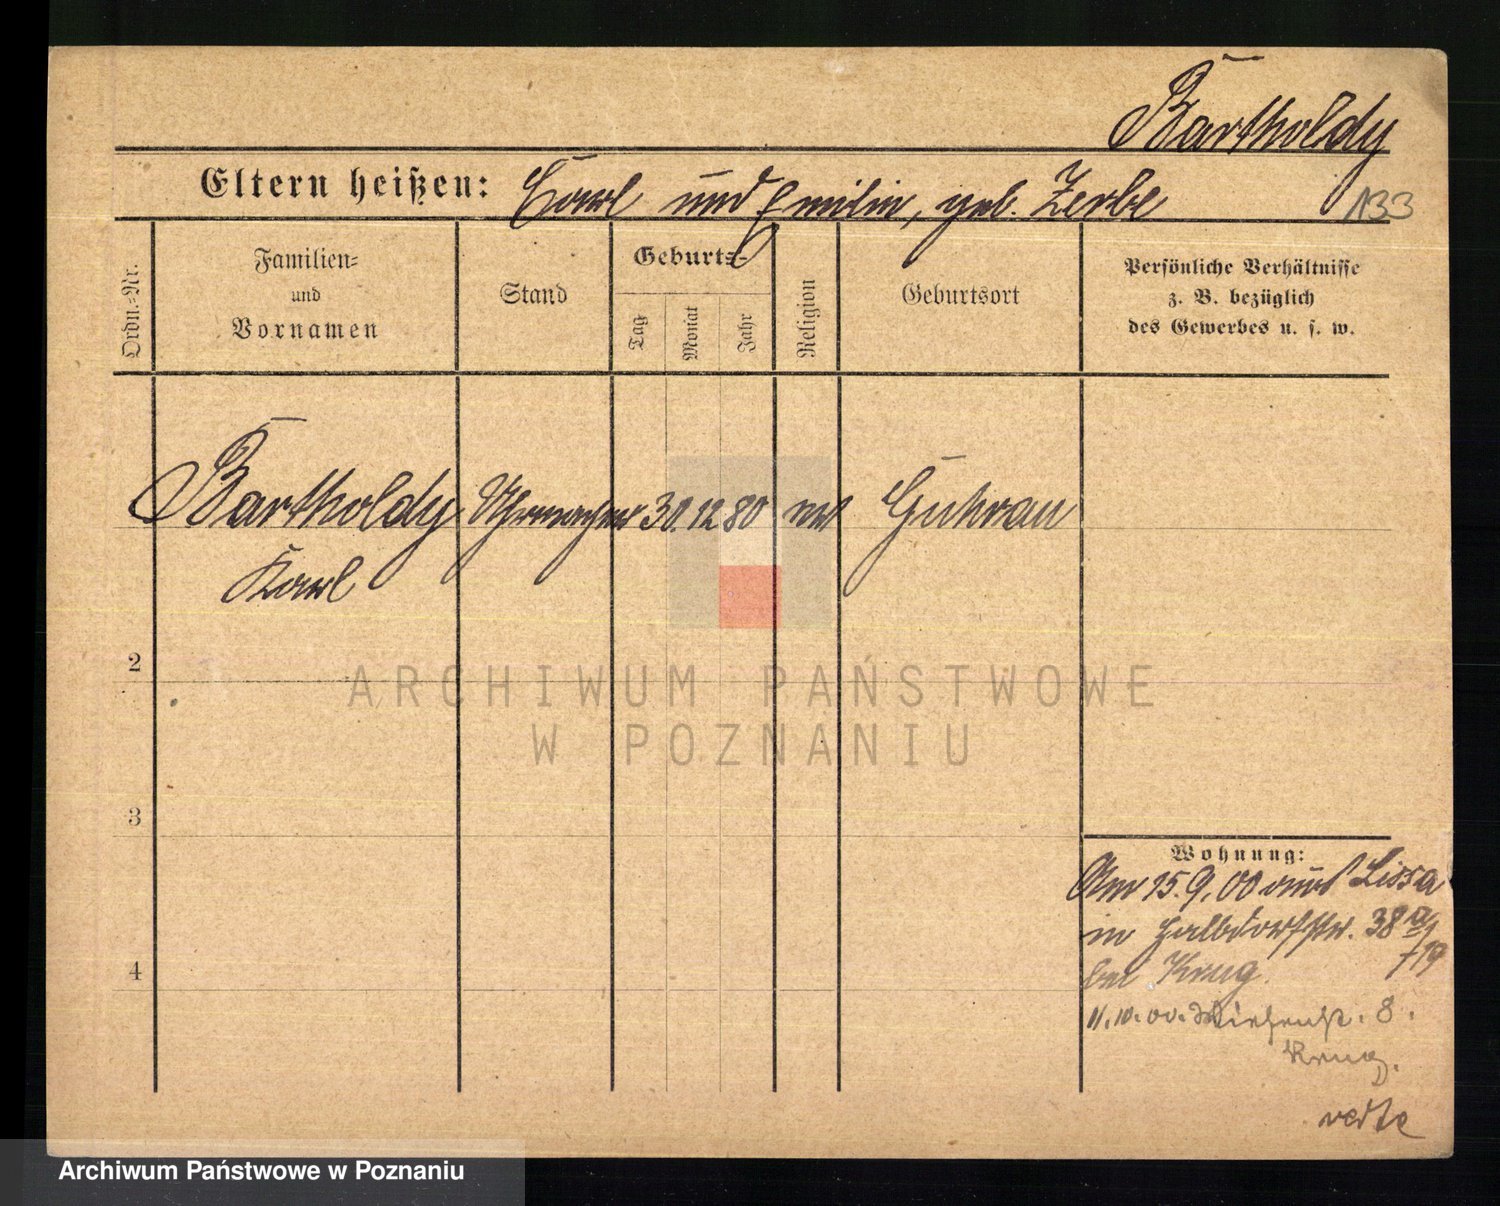 Bartholdy
Eltern heißen: Carl und Emilie, geb. Zerbe
133
Ordn.-Nr.
Familien- und Vornamen
Stand
Geburts-
Tag
Monat
Jahr
Religion
Geburtsort
Persönliche Verhältnisse
z. B. bezüglich
des Gewerbes u. s. w.
Bartholdy Uhrmacher 30. 12 80 ev Guhrau
Karl
2
3
4
Wohnung:
Am 15. 9. 00 aus Lissa
in Halbdorfstr. 38 a/
719
bei Krug.
11. 10. 00. Wiesenstr. 8.
Krug.
verte
ARCHIWUM PAŃSTWOWE
W POZNANIU
Archiwum Państwowe w Poznaniu